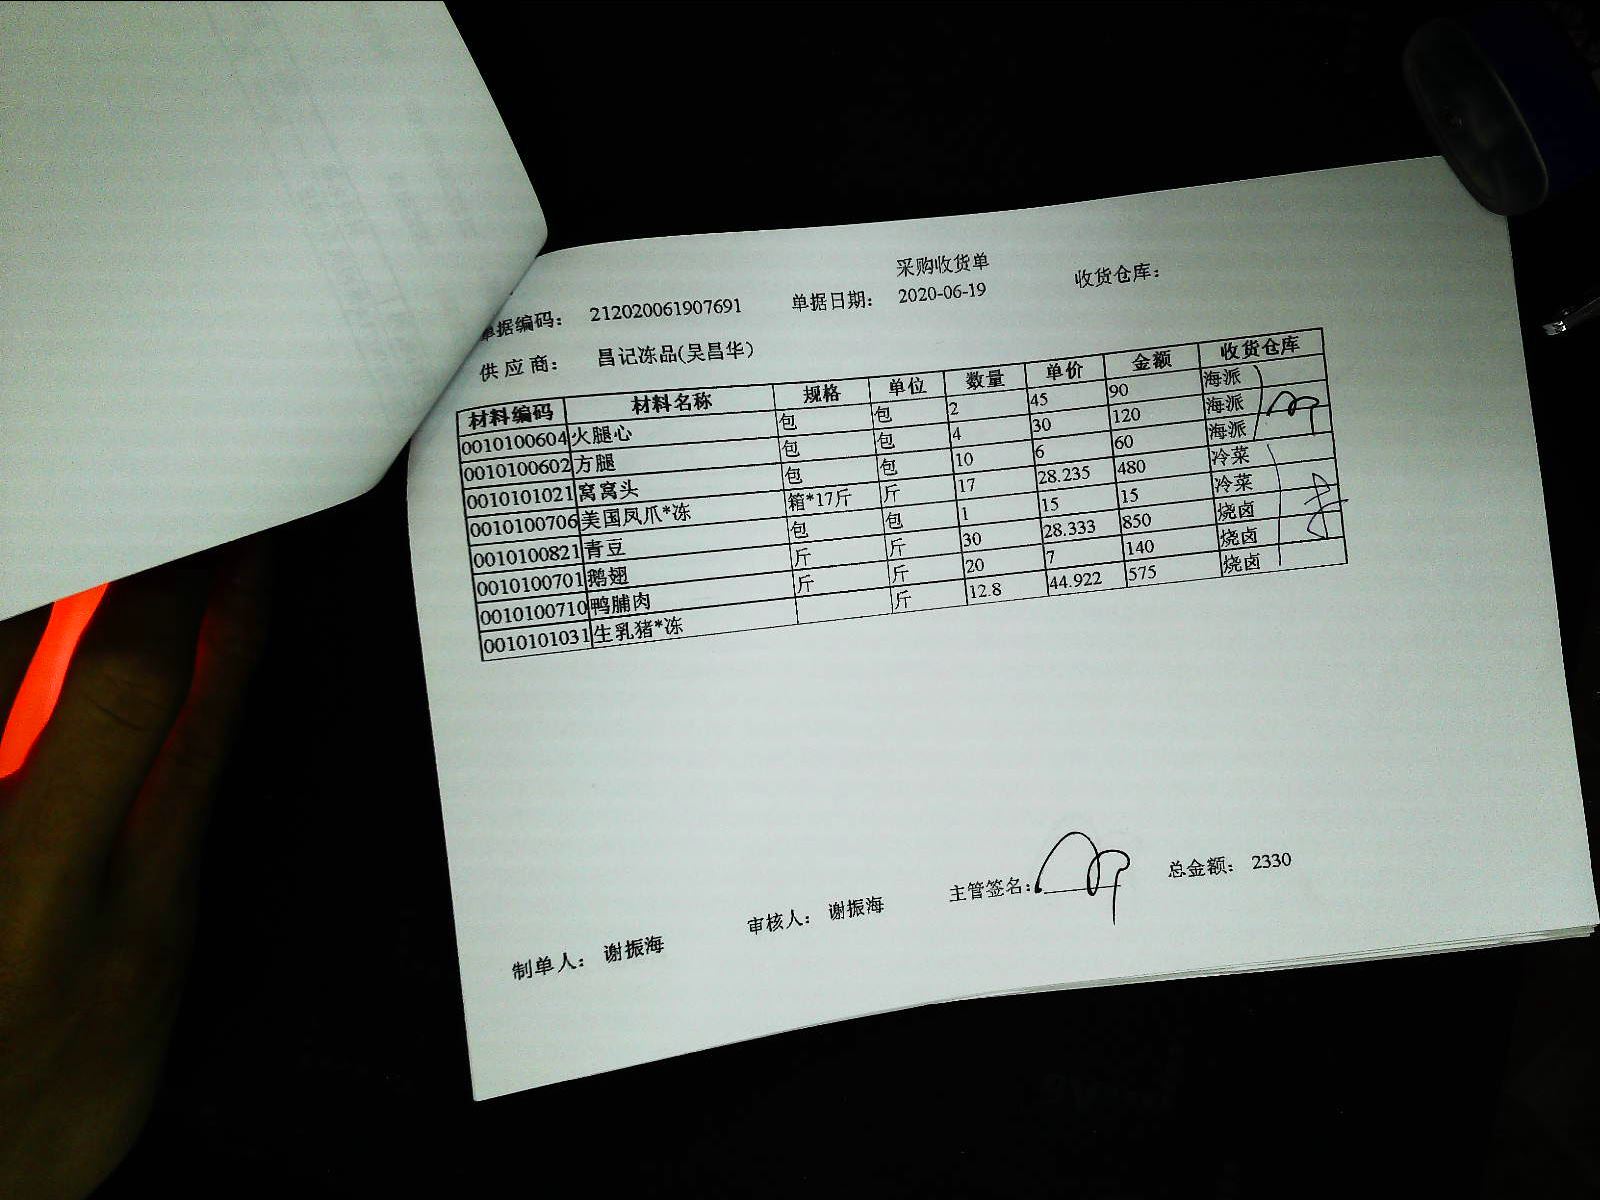 采购收货单
单据编码： 212020061907691 单据日期： 2020-06-19 收货仓库：
供应商： 昌记冻品(吴昌华)
材料编码 材料名称 规格 单位 数量 单价 金额 收货仓库
0010100604 火腿心 包 包 2 45 90 海派
0010100602 方腿 包 包 4 30 120 海派
0010101021 窝窝头 包 包 10 6 60 海派
0010100706 美国凤爪*冻 箱*17斤 斤 17 28.235 480 冷菜
0010100821 青豆 包 包 1 15 15 冷菜
0010100701 鹅翅 斤 斤 30 28.333 850 烧卤
0010100710 鸭脯肉 斤 斤 20 7 140 烧卤
0010101031 生乳猪*冻 斤 12.8 44.922 575 烧卤
制单人： 谢振海 审核人： 谢振海 主管签名： 总金额： 2330